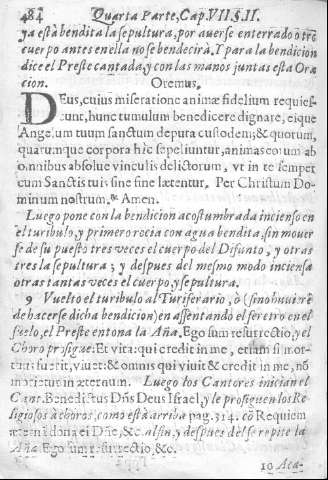 484 Quarta Parte, Cap. VII. §. II.
ya està bendita la sepultura, por averse enterrado òtrõ
cuerpo antes en ella no se bendecirà. Y para la bendicion
dice el Preste cantada, y con las manos juntas esta Ora
cion. Oremus.
DEus, cuius miseratione animæ fidelium requies-
cunt, hunc tumulum benedicere dignare, eique
Angelum tuum sanctum deputa custodem; & quorum,
quarumque corpora hîc sepeliuntur, animas eorum ab
omnibus absolve vinculis delictorum, vt in te semper
cum Sanctis tuis sine fine lætentur. Per Christum Do-
minum nostrum. ℞. Amen.
Luego pone con la bendicion acostumbrada incienso en
el turibulo, y primero rocia con agua bendita, sin mover
se de su puesto tres veces el cuerpo del Difunto, y otras
tres la sepultura; y despues del mesmo modo inciensa
otras tantas veces el cuerpo, y sepultura.
9 Vuelto el turibulo al Turiferario, ò (sino huviere
de hacerse dicha bendicion) en assentando el feretro en el
suelo, el Preste entona la Aña. Ego sum resurrectio, y el
Choro prosigue: Et vita: qui credit in me, etiam si mor-
tuus fuerit, vivet: & omnis qui vivit & credit in me, nõ
morietur in æternum. Luego los Cantores inician el
Cant. Benedictus Dñs Deus Israel, y le prosiguen los Re
ligiosos à choros, como està arriba pag. 314. cõ Requiem
æternã dona ei Dñe, &c. al fin, y despues del se repite la
Aña. Ego sum resurrectio, &c.
10 Aca-